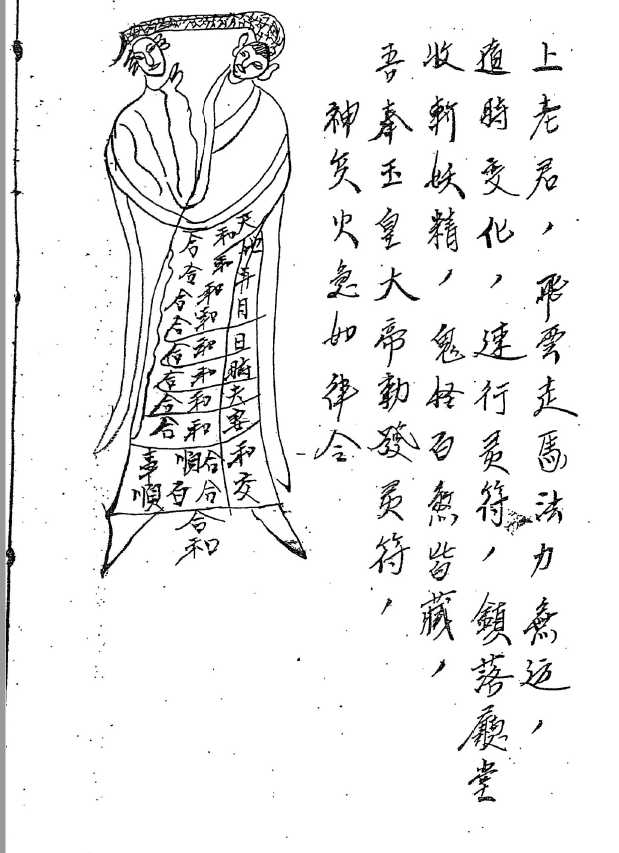 上老君，飛雲走馬法力無边，
遁時变化，速行灵符，鎮落廳堂
收斬妖精，鬼怪百煞皆藏，
吾奉玉皇大帝勅發灵符，
神兵火急如律令
天地年月日時夫妻和交
和和和和和和和和合合
合合合合合合合合順百
事順
合和